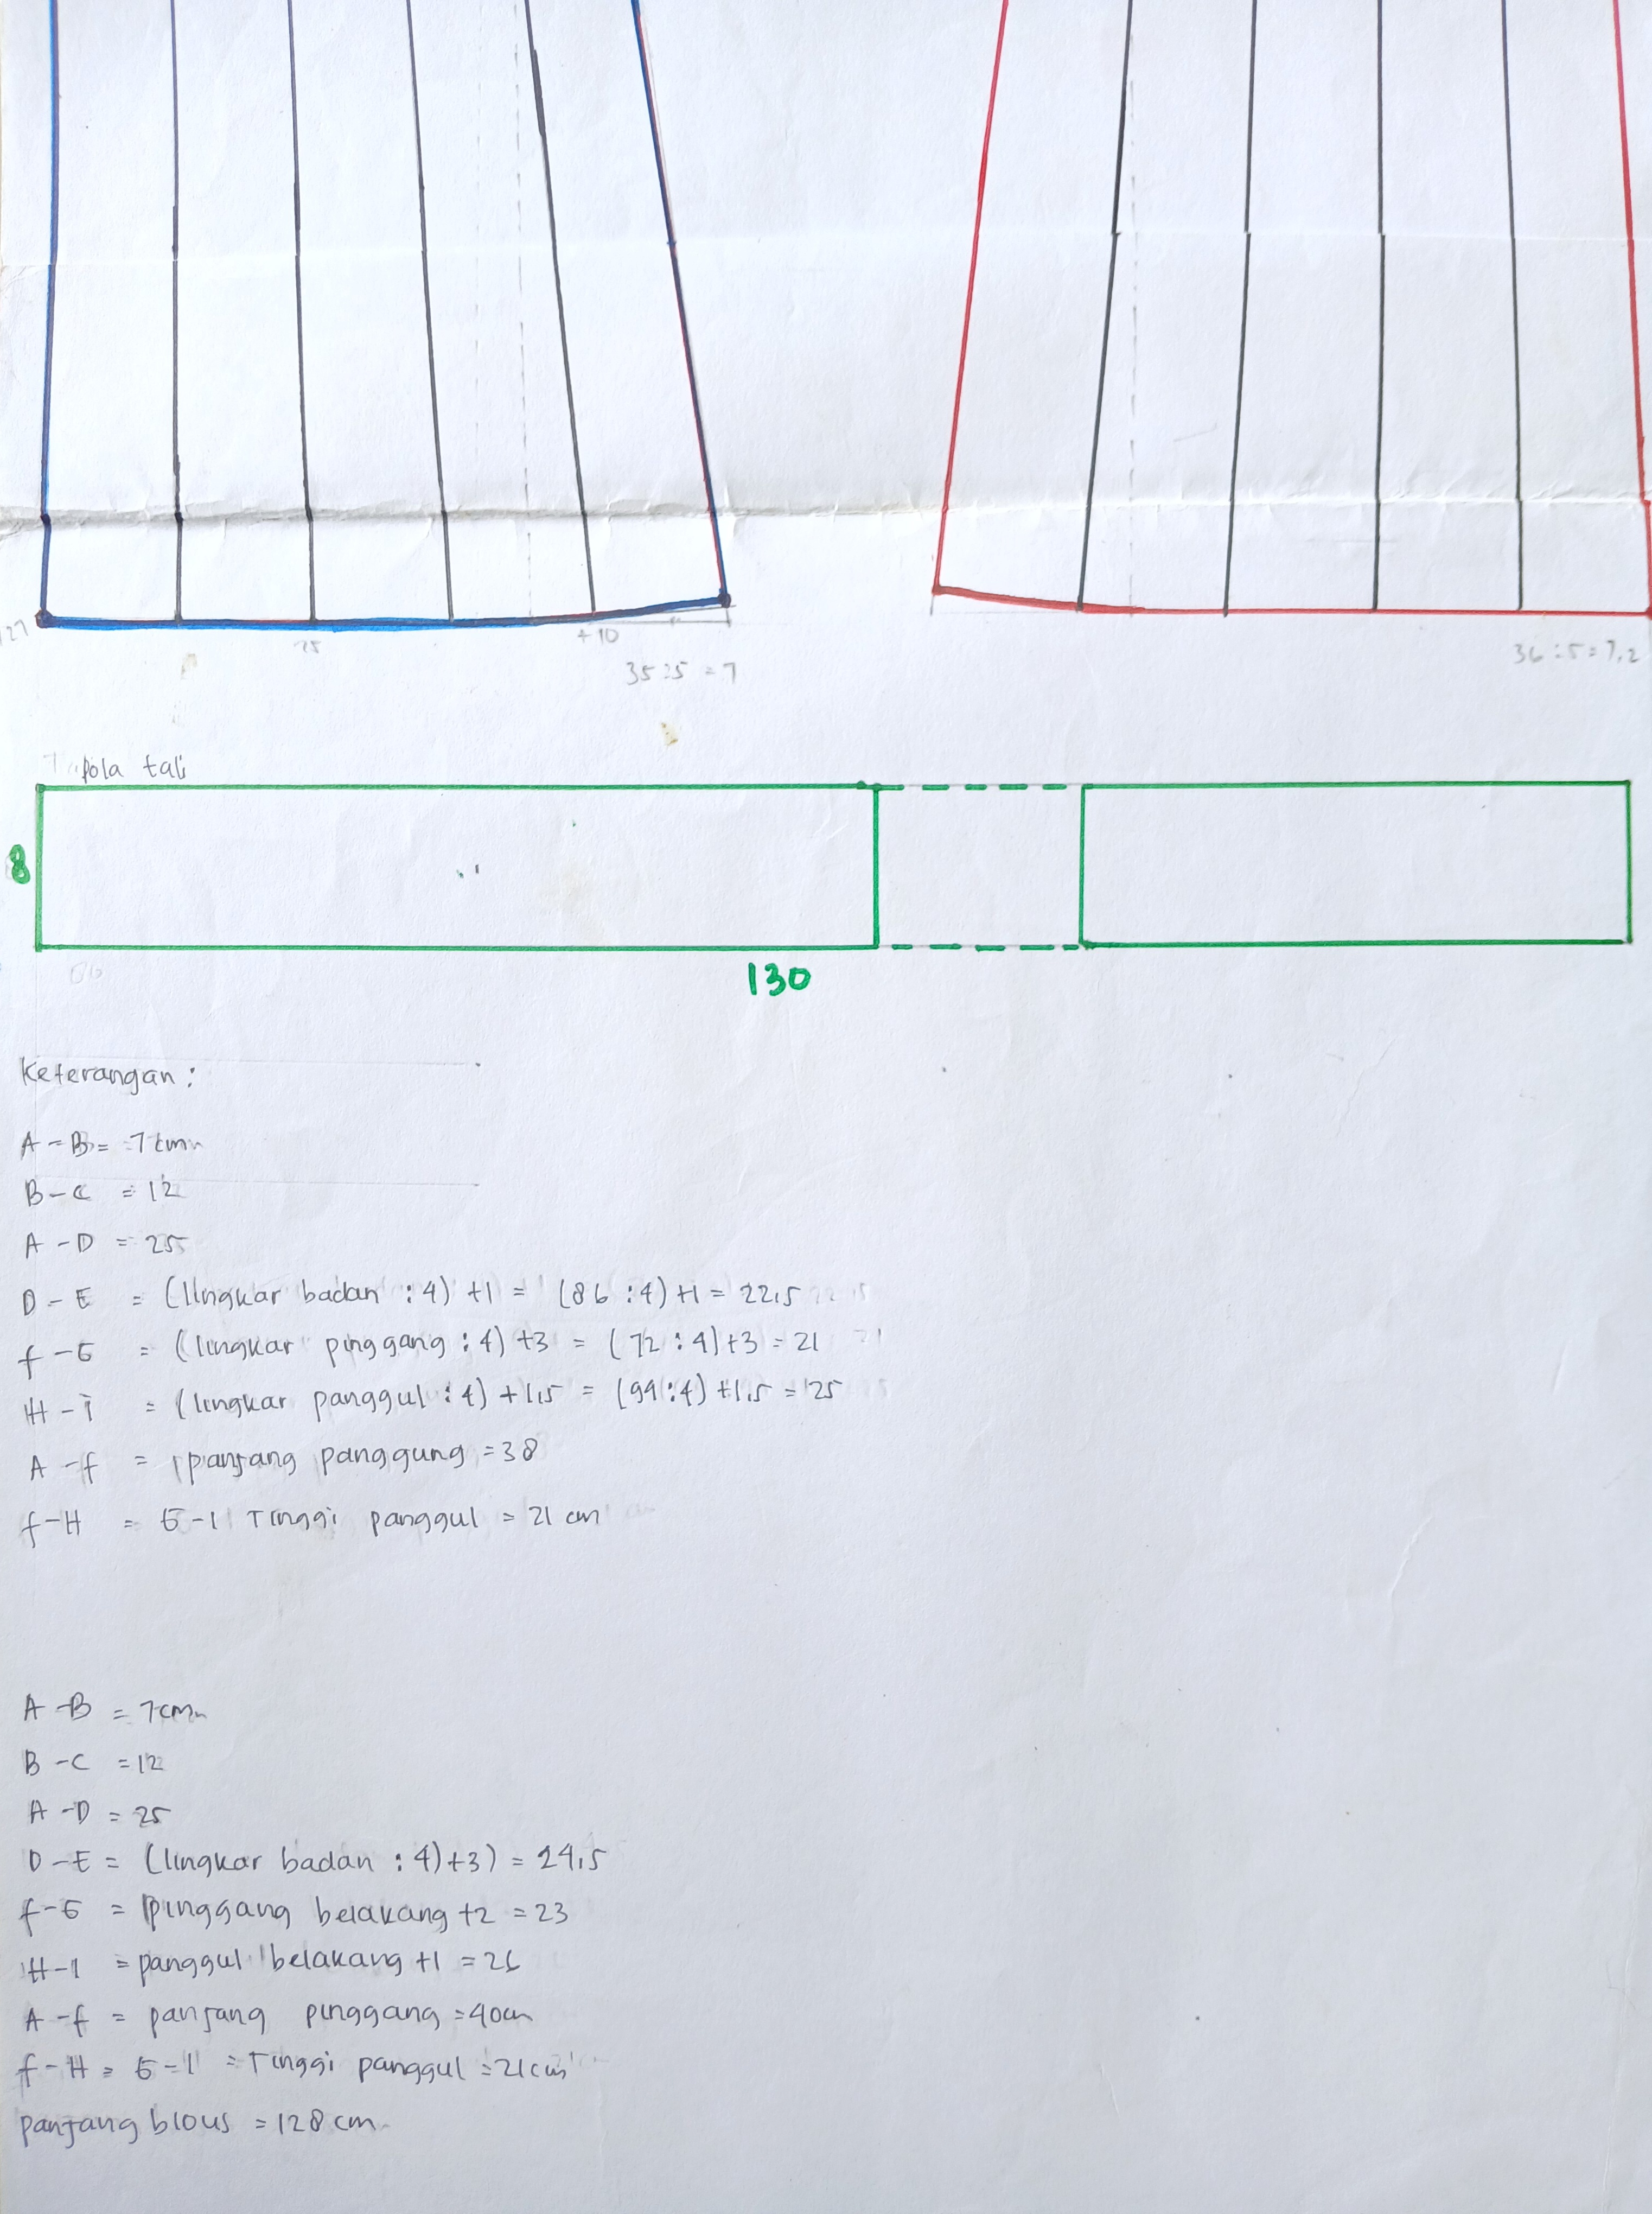 27
25
+10
35:5 = 7
36:5=7,2
Pola tali
8
130
Keterangan:
A-B = 7 cm
B-C = 12
A-D = 25
D-E = (lingkar badan : 4) +1 = (86 : 4) +1 = 22,5
f-G = (lingkar pinggang : 4) +3 = (72 : 4) +3 = 21
H-i = (lingkar panggul : 4) +1,5 = (94 : 4) +1,5 = 25
A-f = panjang panggung = 38
f-H = G-I Tinggi panggul = 21 cm
A-B = 7cm
B-C = 12
A-D = 25
D-E = (lingkar badan : 4)+3) = 24,5
f-G = pinggang belakang +2 = 23
H-I = panggul belakang +1 = 26
A-f = panjang pinggang = 40cm
f-H = G-I = Tinggi panggul = 21cm
panjang blous = 128 cm